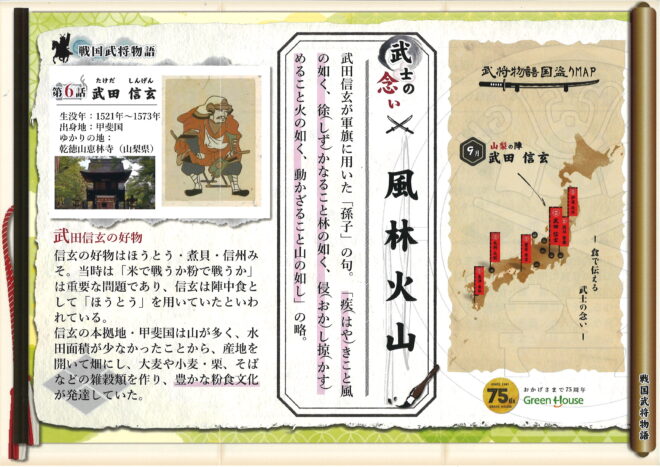 戦国武将物語
第6話
たけだ しんげん
武田 信玄
生没年：1521年～1573年
出身地：甲斐国
ゆかりの地：
乾徳山恵林寺（山梨県）
武田信玄の好物
信玄の好物はほうとう・煮貝・信州み
そ。当時は「米で戦うか粉で戦うか」
は重要な問題であり、信玄は陣中食と
して「ほうとう」を用いていたといわ
れている。
信玄の本拠地・甲斐国は山が多く、水
田面積が少なかったことから、産地を
開いて畑にし、大麦や小麦・栗、そば
などの雑穀類を作り、豊かな粉食文化
が発達していた。
武士の念い
風林火山
武田信玄が軍旗に用いた「孫子」の句。「疾(はや)きこと風
の如く、徐(しず)かなること林の如く、侵(おか)し掠(かす)
めること火の如く、動かざること山の如し」の略。
武将物語国盗りMAP
9月
山梨の陣
武田 信玄
武田信玄
― 食で伝える
武士の念い ―
75th
おかげさまで75周年
Green House
戦国武将物語